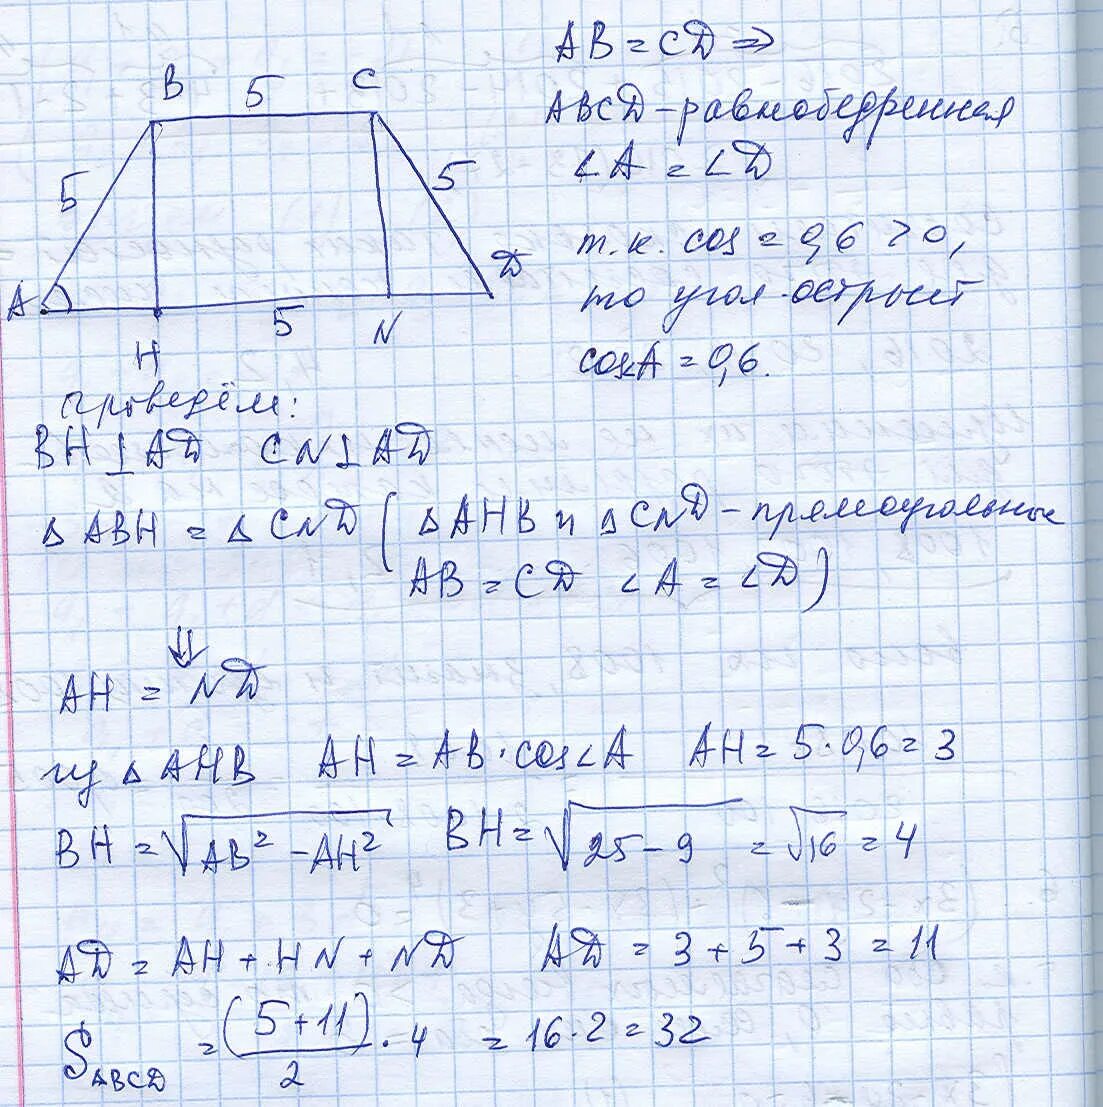 B 5 C
5 5
A D
H 5 N
AB = CD ⇒
ABCD - равнобедренная
∠A = ∠D
т.к. cos = 0,6 > 0,
то угол острый
cosA = 0,6.
проведём:
BH ⊥ AD CN ⊥ AD
△ ABH = △ CND ( △ AHB и △ CND - прямоугольные
AB = CD ∠A = ∠D )
⇓
AH = ND
из △ AHB AH = AB · cos∠A AH = 5 · 0,6 = 3
BH = √(AB² - AH²) BH = √(25 - 9) = √16 = 4
AD = AH + HN + ND AD = 3 + 5 + 3 = 11
S_ABCD = (5 + 11)/2 · 4 = 16 · 2 = 32